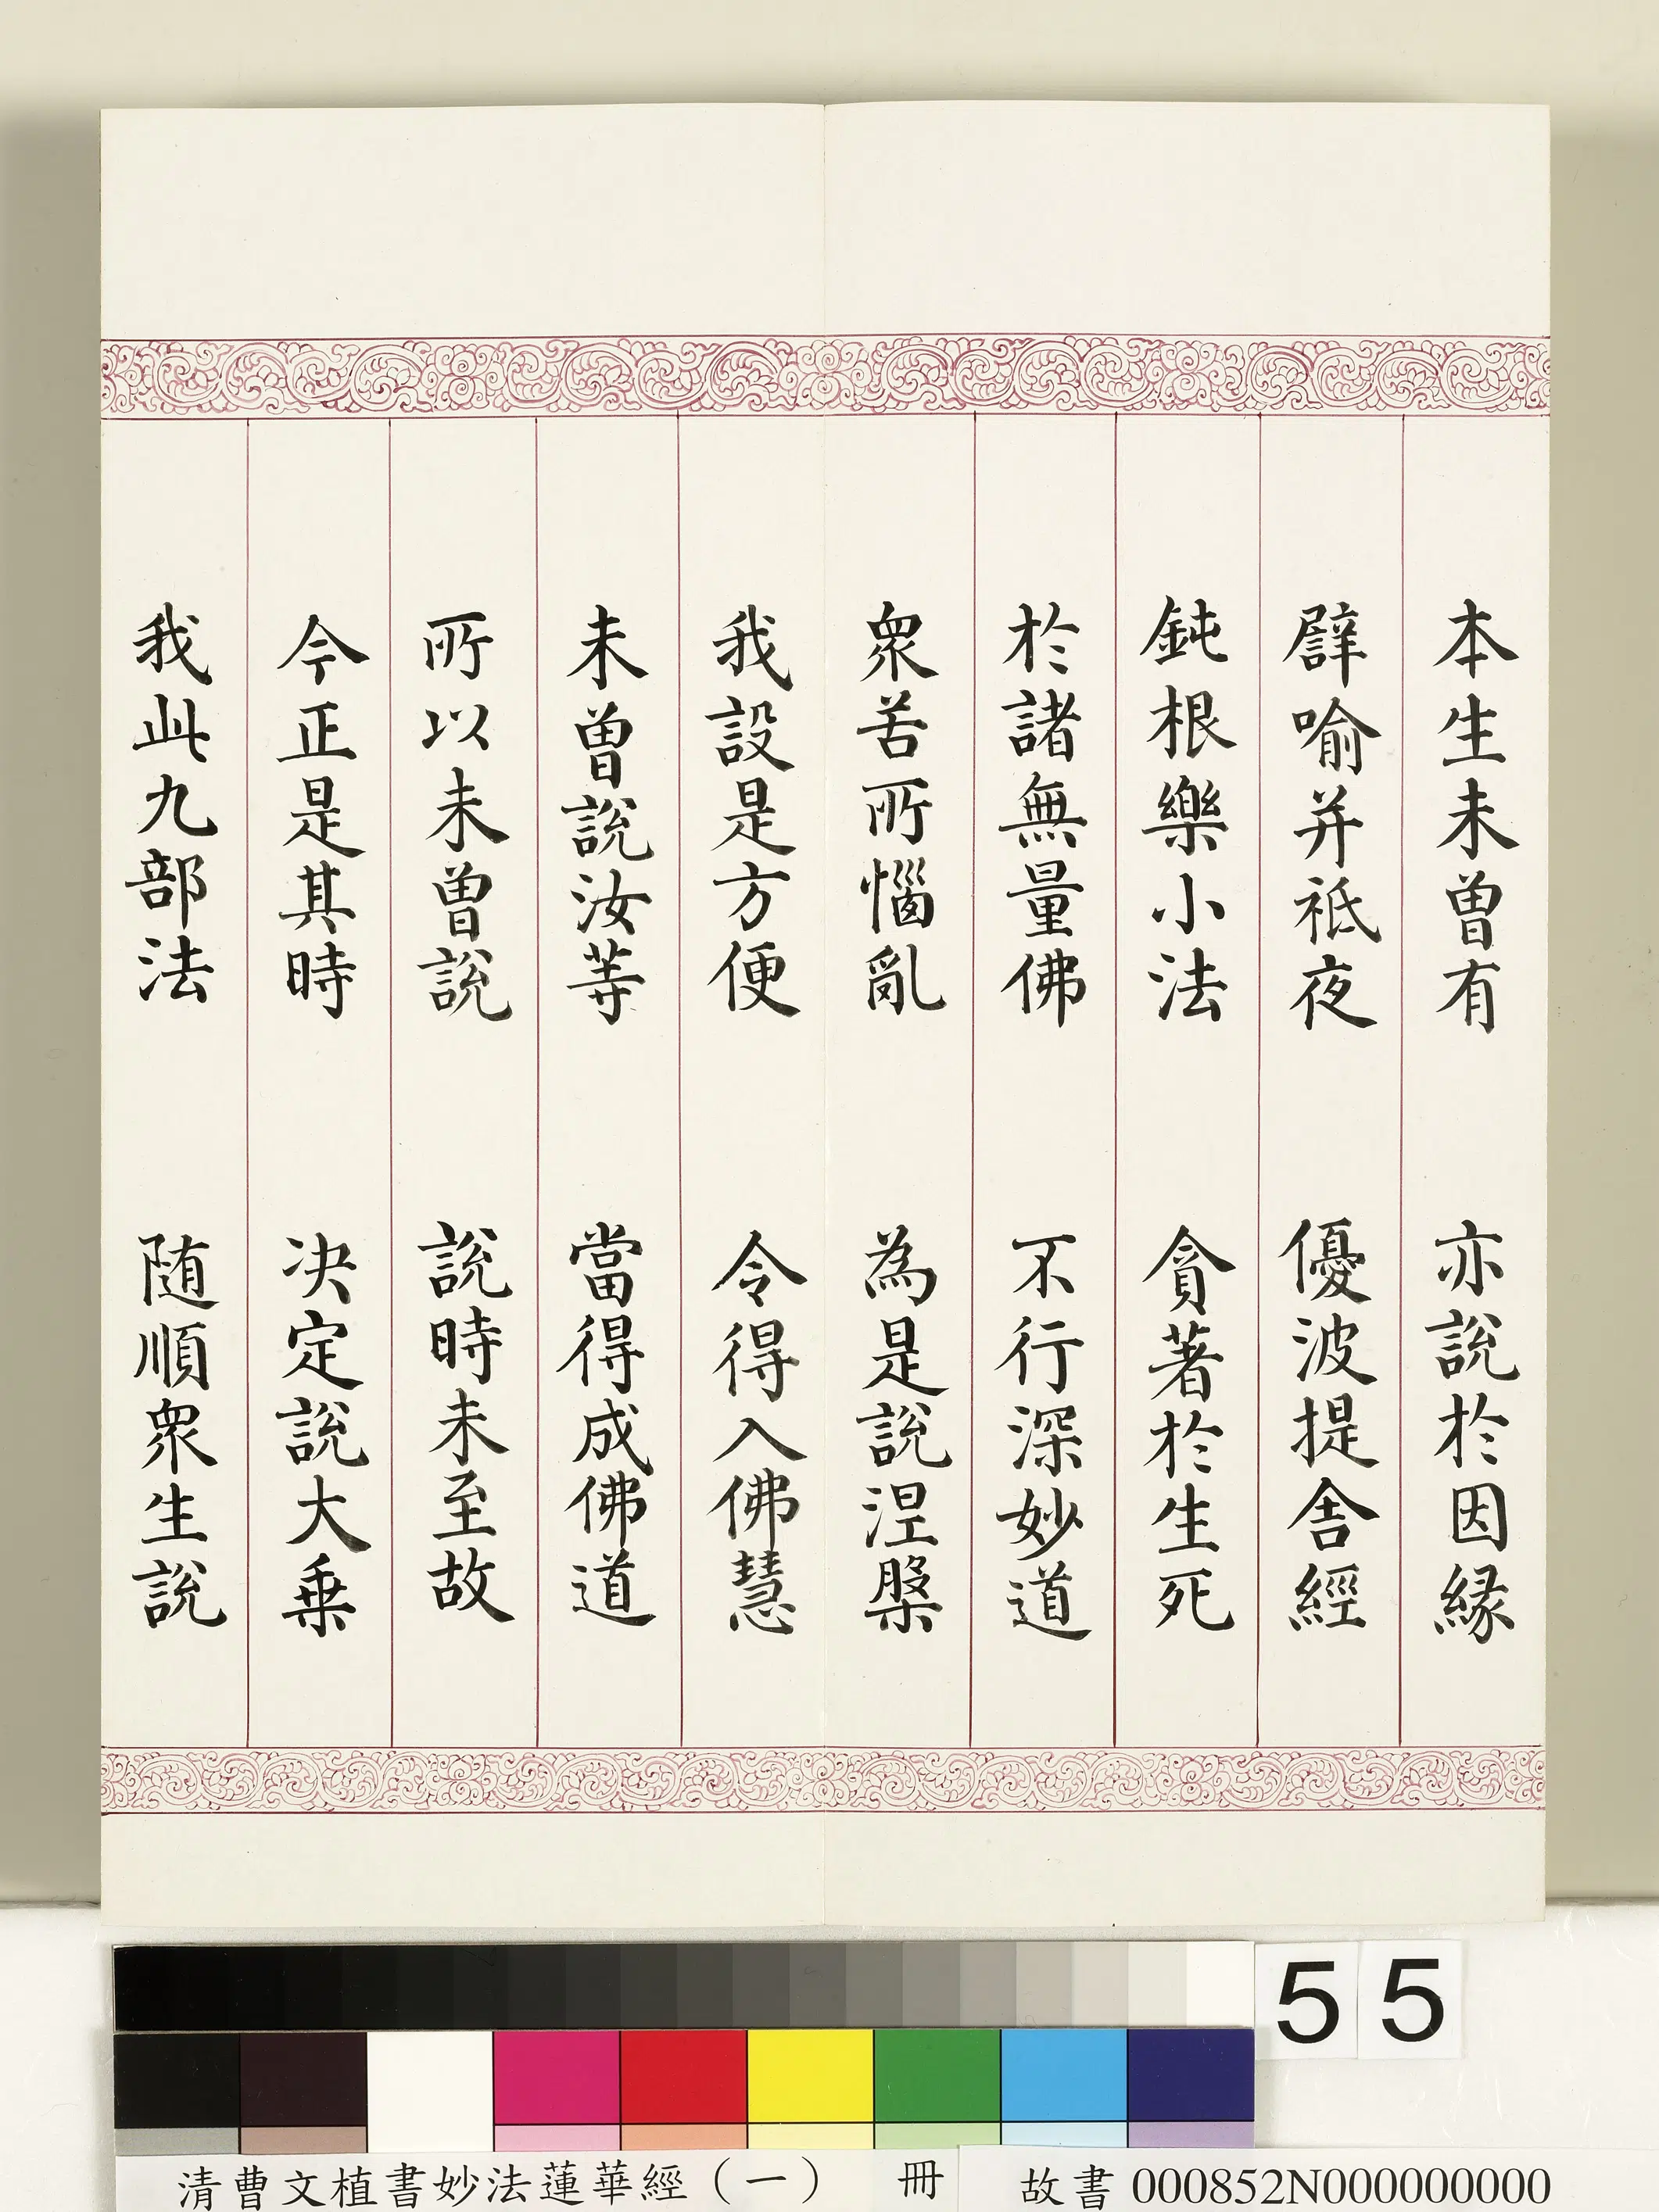 本生未曾有　亦說於因緣
譬喻并祇夜　優波提舍經
鈍根樂小法　貪著於生死
於諸無量佛　不行深妙道
眾苦所惱亂　為是說涅槃
我設是方便　令得入佛慧
未曾說汝等　當得成佛道
所以未曾說　說時未至故
今正是其時　决定說大乗
我此九部法　随順眾生說
55
清曹文植書妙法蓮華經（一）　冊　故書 000852N000000000